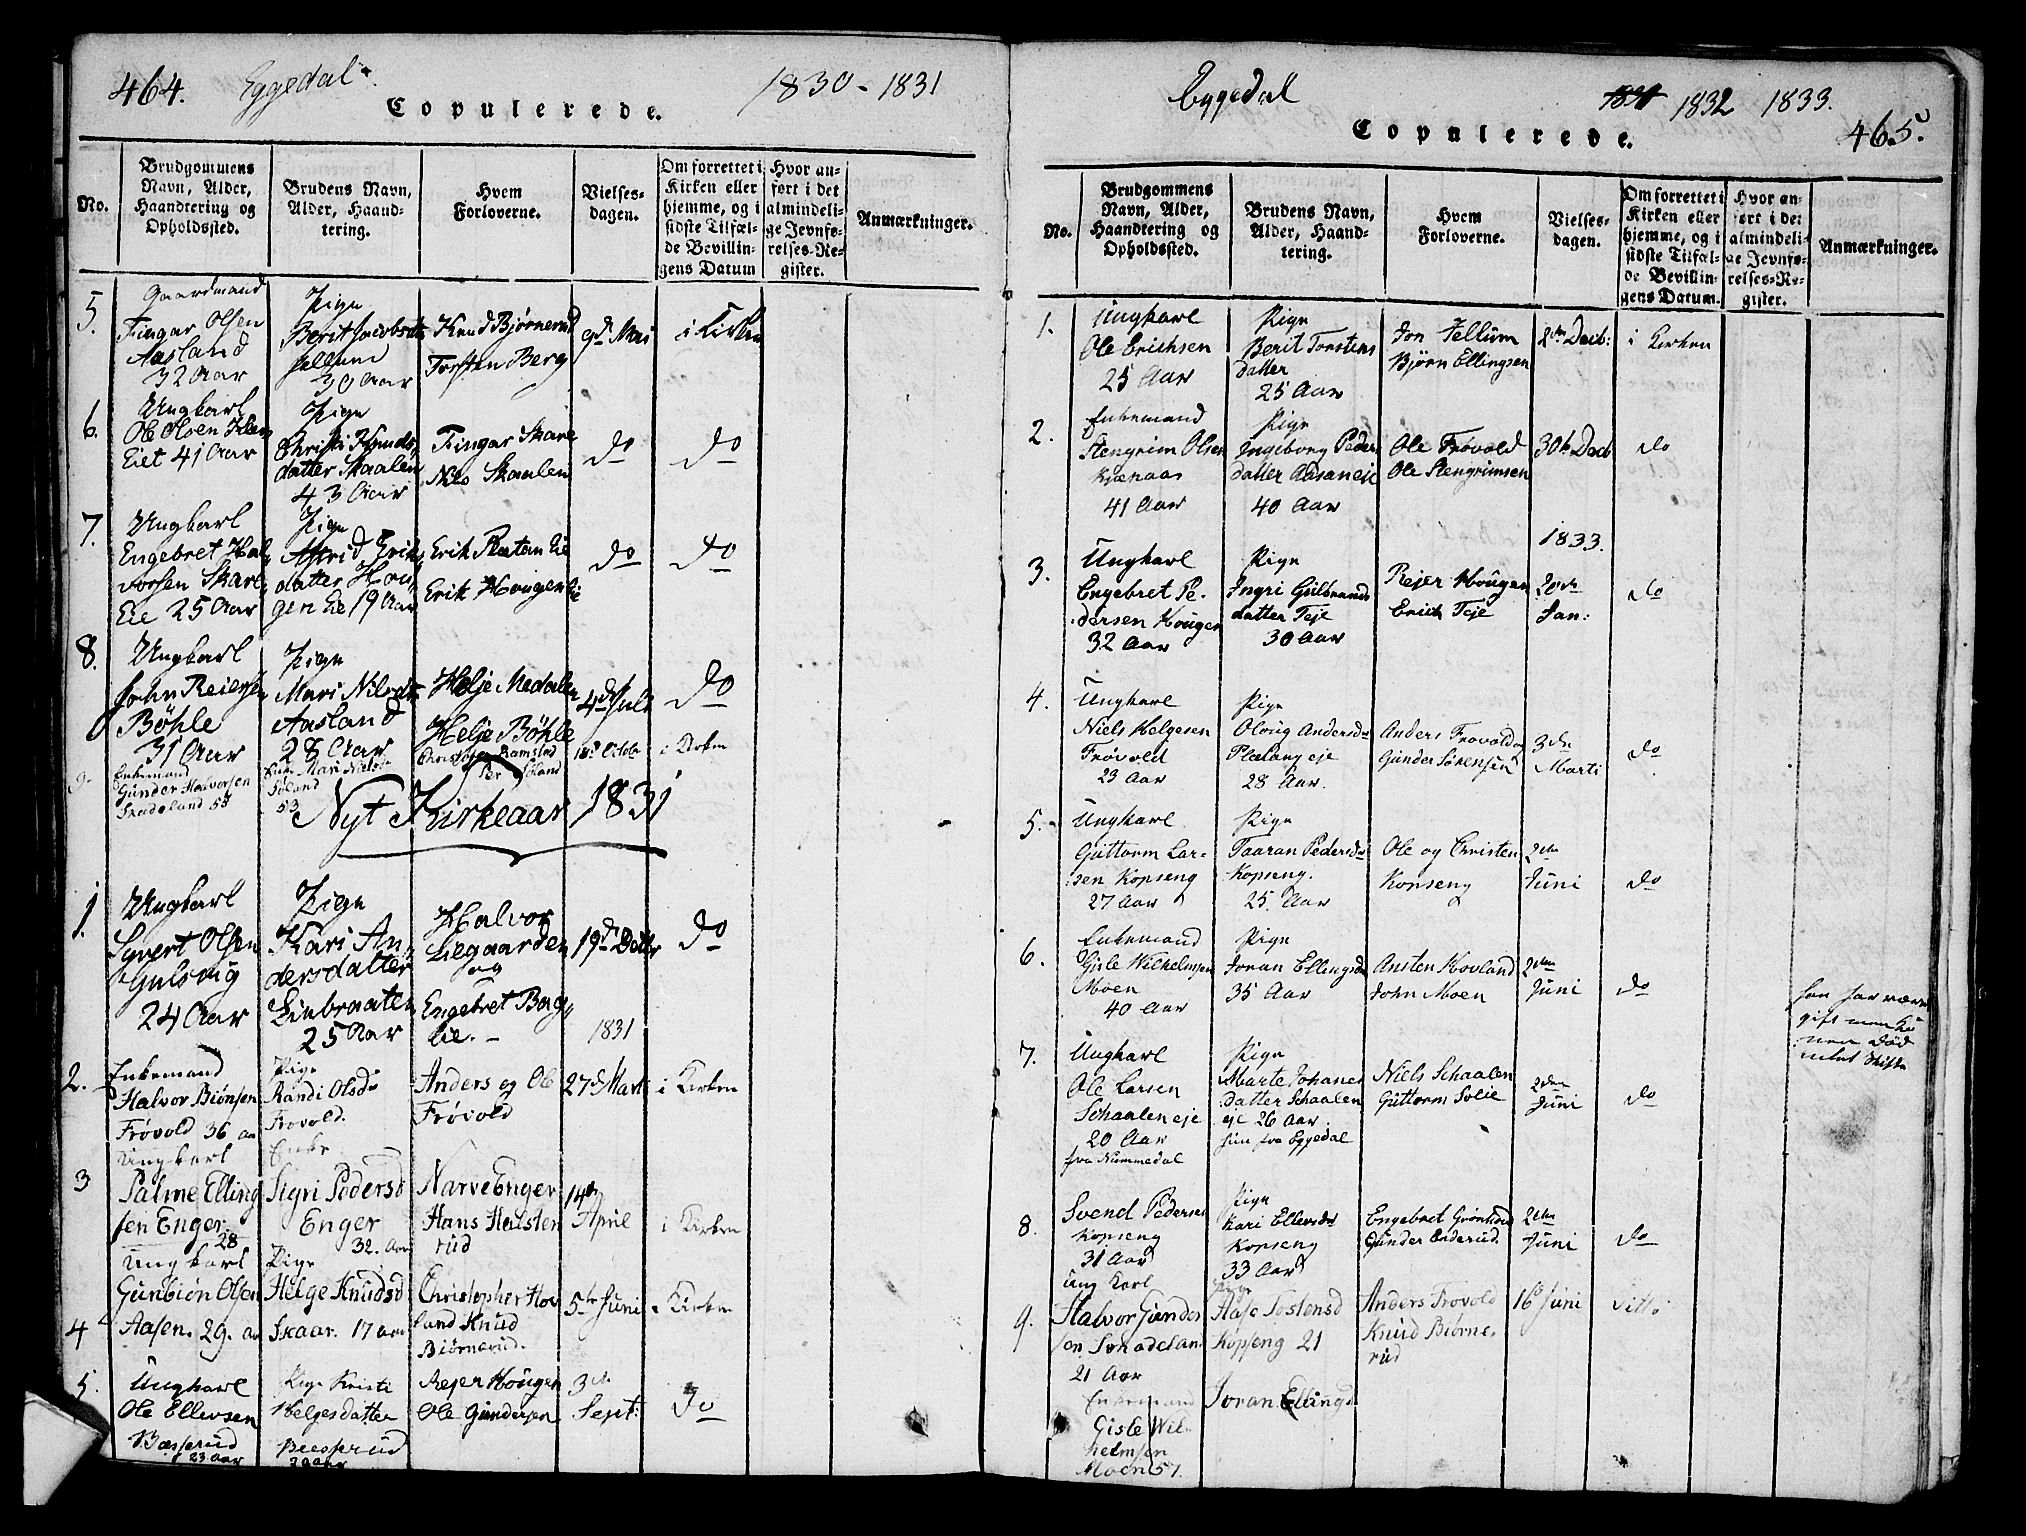 464.
Eggedal.
1830 - 1831
Copulerede.
No.
Brudgommens
Navn, Alder,
Haandtering og
Opholdssted.
Brudens Navn,
Alder, Haand-
tering.
Hvem
Forloverne.
Vielses-
dagen.
Om forrettet i
Kirken eller
hjemme, og i
sidste Tilfæl-
de Bevillin-
gens Datum
Hvor an-
ført i det
almindeli-
ge Jevnfø-
relses-Re-
gister.
Anmærkninger.
5.
Gaardmand
Fingar Olsen
Aasland
32 Aar
Pige
Berit Jacobsdtr
Jellum
30 Aar
Knud Bjørnerud
Torsten Berg
9d Mai
i Kirken
6.
Ungkarl
Ole Olsen
Eiet 41 Aar
Pige
Christi Knuds
datter Skaalen
43 Aar
Fingar Skare
Nils Skaalen
do
do
7.
Ungkarl
Engebret Hal
vorsen Skare
Eie 25 Aar
Pige
Astrid Eriks
datter Hou
gen Eie 19 Aar
Erik Platen Eie
Erik Hougen Eie
do
do
8.
Ungkarl
John Reiersen
Bøhle
31 Aar
Pige
Mari Nilsdtr
Aasland
28 Aar
Helje Medalen
Helje Bøhle
4d Juli
do
9
Enkemand
Gunder Halvorsen
Skadeland 55
Enke Mari Nielsdr
Søland
53
Christopher Ramstad
Per Søland
18d Octobr
i Kirken
Nyt Kirkeaar 1831
1.
Ungkarl
Syvert Olsen
Gulsvig
24 Aar
Pige
Kari An-
dersdatter
Liebraaten
25 Aar
Halvor
Liegaarden
og
Engebret Bag
lie. -
19d Decbr
do
1831
2.
Enkemand
Halvor Biønsen
Frøvold 36 aar
Pige
Randi Olsdr
Frovold.
Enke
Anders og Ole
Frøvold
27d Marti
i Kirken
3
Ungkarl
Palme Elling
sen Enger.
28
Sigri Pedersd
Enger
32. Aar
Narve Enger
Hans Halsten
rud
14de
April
i Kirken
4
Ungkarl
Gunbiøn Olsen
Aasen. 29. aar
Pige
Helge Knudsd
Skaar. 17 aar
Christopher Hov
land Knud
Biørnerud.
5te Juni
i Kirken
5.
Ungkarl
Ole Ellevsen
Bæsserud
23 aar
Pige Kristi
Helgesdatter
Beesserud
Rejer Hougen
Ole Gundersen
3de
Sept:
do
Eggedal
1831 1832 1833.
465.
Copulerede.
No.
Brudgommens
Navn, Alder,
Haandtering og
Opholdssted.
Brudens Navn,
Alder, Haand-
tering.
Hvem
Forloverne.
Vielses-
dagen.
Om forrettet i
Kirken eller
hjemme, og i
sidste Tilfæl-
de Bevillin-
gens Datum.
Hvor an-
ført i det
almindeli-
ge Jevnfø-
relses-Re-
gister.
Anmærkninger.
1.
Ungkarl
Ole Erichsen
25 Aar
Pige
Berit Torstens
datter
25 Aar
Jon Jellum
Bjørn Ellingsen
2den Decb:
i Kirken
2.
Enkemand
Stengrim Olsen
41 Aar
Pige
Ingeborg Peder
datter Aasaneje
40 Aar
Ole Frøvold
Ole Stengrimsen
30te Decb
do
1833.
3.
Ungkarl
Engebret Pe-
dersen Hougen
32 Aar
Pige
Ingri Gulbrands
datter Teje
30 Aar
Rejer Hougen
Erich Teje
20de
Jan:
do
4.
Ungkarl
Niels Helgesen
Frøvold
23 Aar
Pige
Oloug Andersdr
Platang eje
28 Aar.
Anders Frovold
Gunder Sørensen
3de
Marti
do
5.
Ungkarl
Guttorm Lar-
sen Kopseng
27 Aar
Pige
Taaran Pedersdr
Kopseng.
25. Aar
Ole og Christen
Kopseng
2den
Juni
do
6.
Enkemand
Gisle Wilhelmsen
Moen
40 Aar
Pige
Joran Ellingsdr
35 Aar
Ansten Hovland
John Moen
2den
Juni
do
han har være
gift men
nen død
7.
Ungkarl
Ole Larsen
Schaalen eje
20 Aar
fra Nummedal
Pige
Marte Johanes
datter Schaalen
eje 26 Aar
hun fra Eggedal
Niels Schaalen
Guttorm Solie
2den
Juni
do
8.
Svend Pedersen
Kopseng
31 Aar
Pige
Kari Ellevsdr
Kopseng
33 Aar
Engebret Grønlid
Gunder Enderud.
2den
Juni
do
9.
Ung karl
Halvor Gunder
sen Skadelan
21 Aar
Pige
Aase Tostensd
Kopseng 21
Anders Frovold
Knud Biørne-
rud
16d Juni
ditto
Enkemand
Gisle Wil-
helmsen
Moen 57.
Joran Ellingd